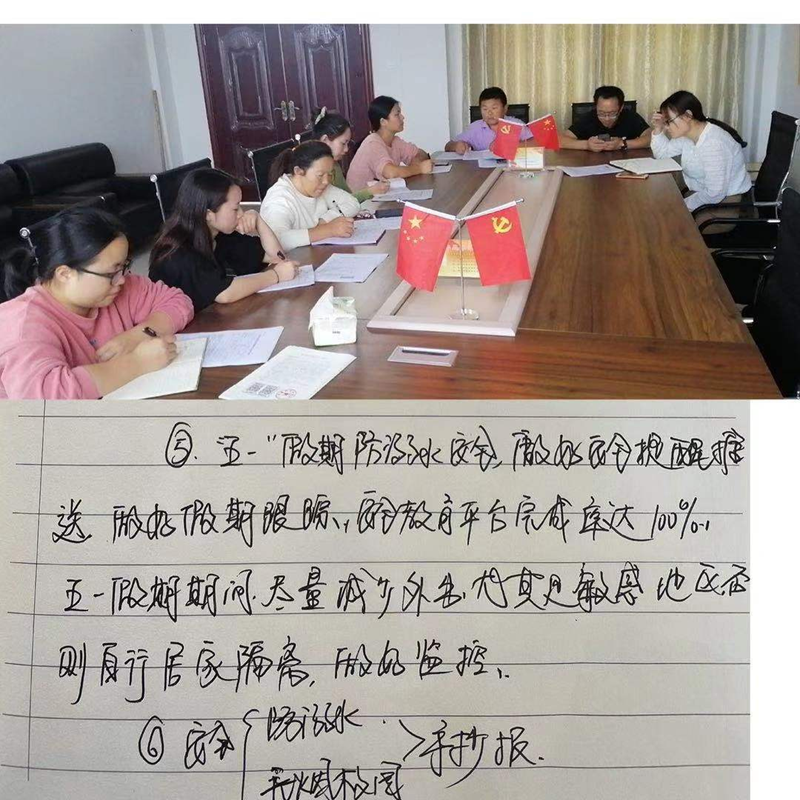 ⑤. "五一"假期防溺水安全,做好安全提醒推
送,做好假期跟踪,安全教育平台完成率达100%,
五一假期期间,尽量减少外出,尤其是敏感地区,否
则自行居家隔离,做好监控.
⑥ 安全{防溺水
>手抄报.